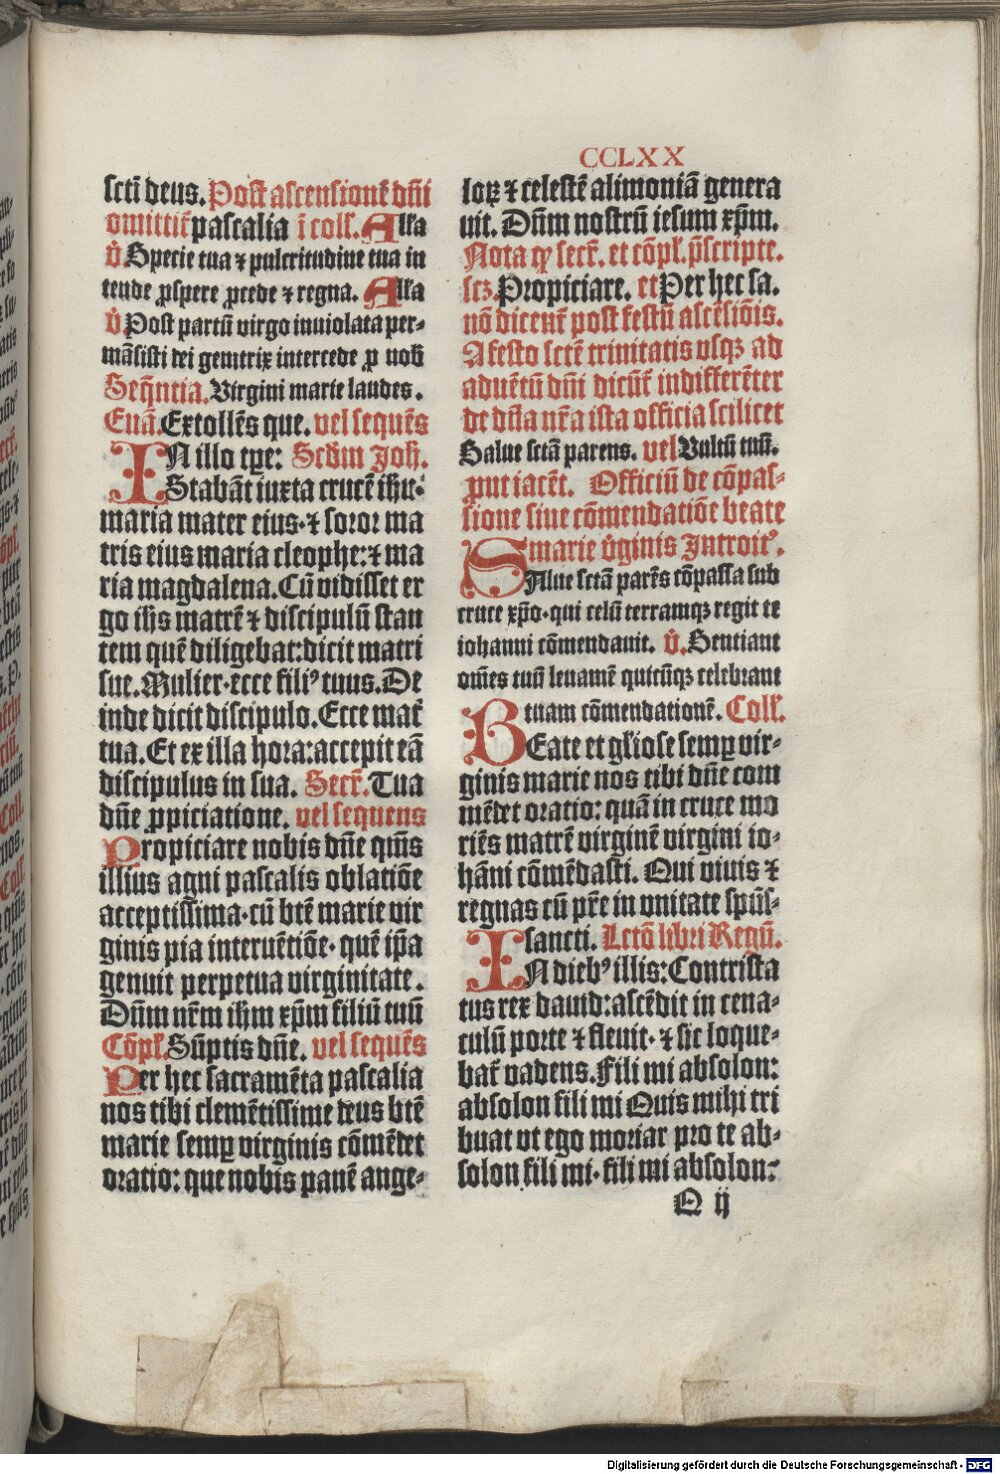 CCLXX
scti deus. Post ascensionē dñi
omittit᷑ pascalia ī coll᷑. Alla
v̉ Specie tua ⁊ pulcritudine tua in
tende ꝓspere ꝓcede ⁊ regna. Alla
v̉ Post partū virgo inuiolata per⸗
māsisti dei genitrix intercede ꝓ nob̄
Seq̄ntia. Virgini marie laudes.
Euā. Extollēs que. vel sequēs
IN illo tꝑe: Scd̄m Joh.
Stabāt iuxta crucē ih̄u:
maria mater eius·⁊ soror ma
tris eius maria cleophe:⁊ ma
ria magdalena. Cū vidisset er
go ih̄s matrē ⁊ discipulū stan
tem quē diligebat:dicit matri
sue. Mulier·ecce filiꝰ tuus. De
inde dicit discipulo. Ecce mat᷑
tua. Et ex illa hora:accepit eā
discipulus in sua. Secr᷑. Tua
dn̄e ꝓpiciatione. vel sequens
Propiciare nobis dn̄e qm̄s
illius agni pascalis oblatiōe
acceptissima·cū btē marie vir
ginis pia interuētiōe·quē ip̄a
genuit perpetua virginitate.
Dn̄m nr̄m ih̄m xp̄m filiū tuū
Cōpl᷑. Sūptis dn̄e. vel sequēs
Per hec sacramēta pascalia
nos tibi clemētissime deus btē
marie semꝑ virginis cōmēdet
oratio: que nobis panē ange⸗
loꝝ ⁊ celestē alimoniā genera
uit. Dn̄m nostrū iesum xp̄m.
Nota ꝙ secr᷑. et cōpl᷑. p̄scripte.
scꝫ. Propiciare. et Per hec sa.
nō dicent᷑ post festū ascēsiōis.
A festo sctē trinitatis vsqꝫ ad
aduētū dn̄i dicūt᷑ indifferēter
de dn̄a nr̄a ista officia scilicet
Salue sctā parens. vel Vultū tuū.
ꝓut iacēt. Officiū de cōpas⸗
sione siue cōmendatiōe beate
marie v̉ginis Introitꝰ.
SAlue sctā parēs cōpassa sub
cruce xp̄o·qui celū terramqꝫ regit te
iohanni cōmendauit. v̉. Sentiant
om̄es tuū leuamē quicūqꝫ celebrant
tuam cōmendationē. Coll᷑.
BEate et gl̄iose semꝑ vir⸗
ginis marie nos tibi dn̄e com
mēdet oratio: quā in cruce mo
riēs matrē virginē virgini io⸗
hāni cōmēdasti. Qui viuis ⁊
regnas cū pr̄e in vnitate spūs⸗
sancti. Lctō libri Regū.
IN diebꝰ illis: Contrista
tus rex dauid: ascēdit in cena⸗
culū porte ⁊ fleuit·⁊ sic loque⸗
bat᷑ vadens. Fili mi absolon:
absolon fili mi Quis mihi tri
buat vt ego moriar pro te ab⸗
solon fili mi·fili mi absolon:
Q ij
Digitalisierung gefördert durch die Deutsche Forschungsgemeinschaft - DFG